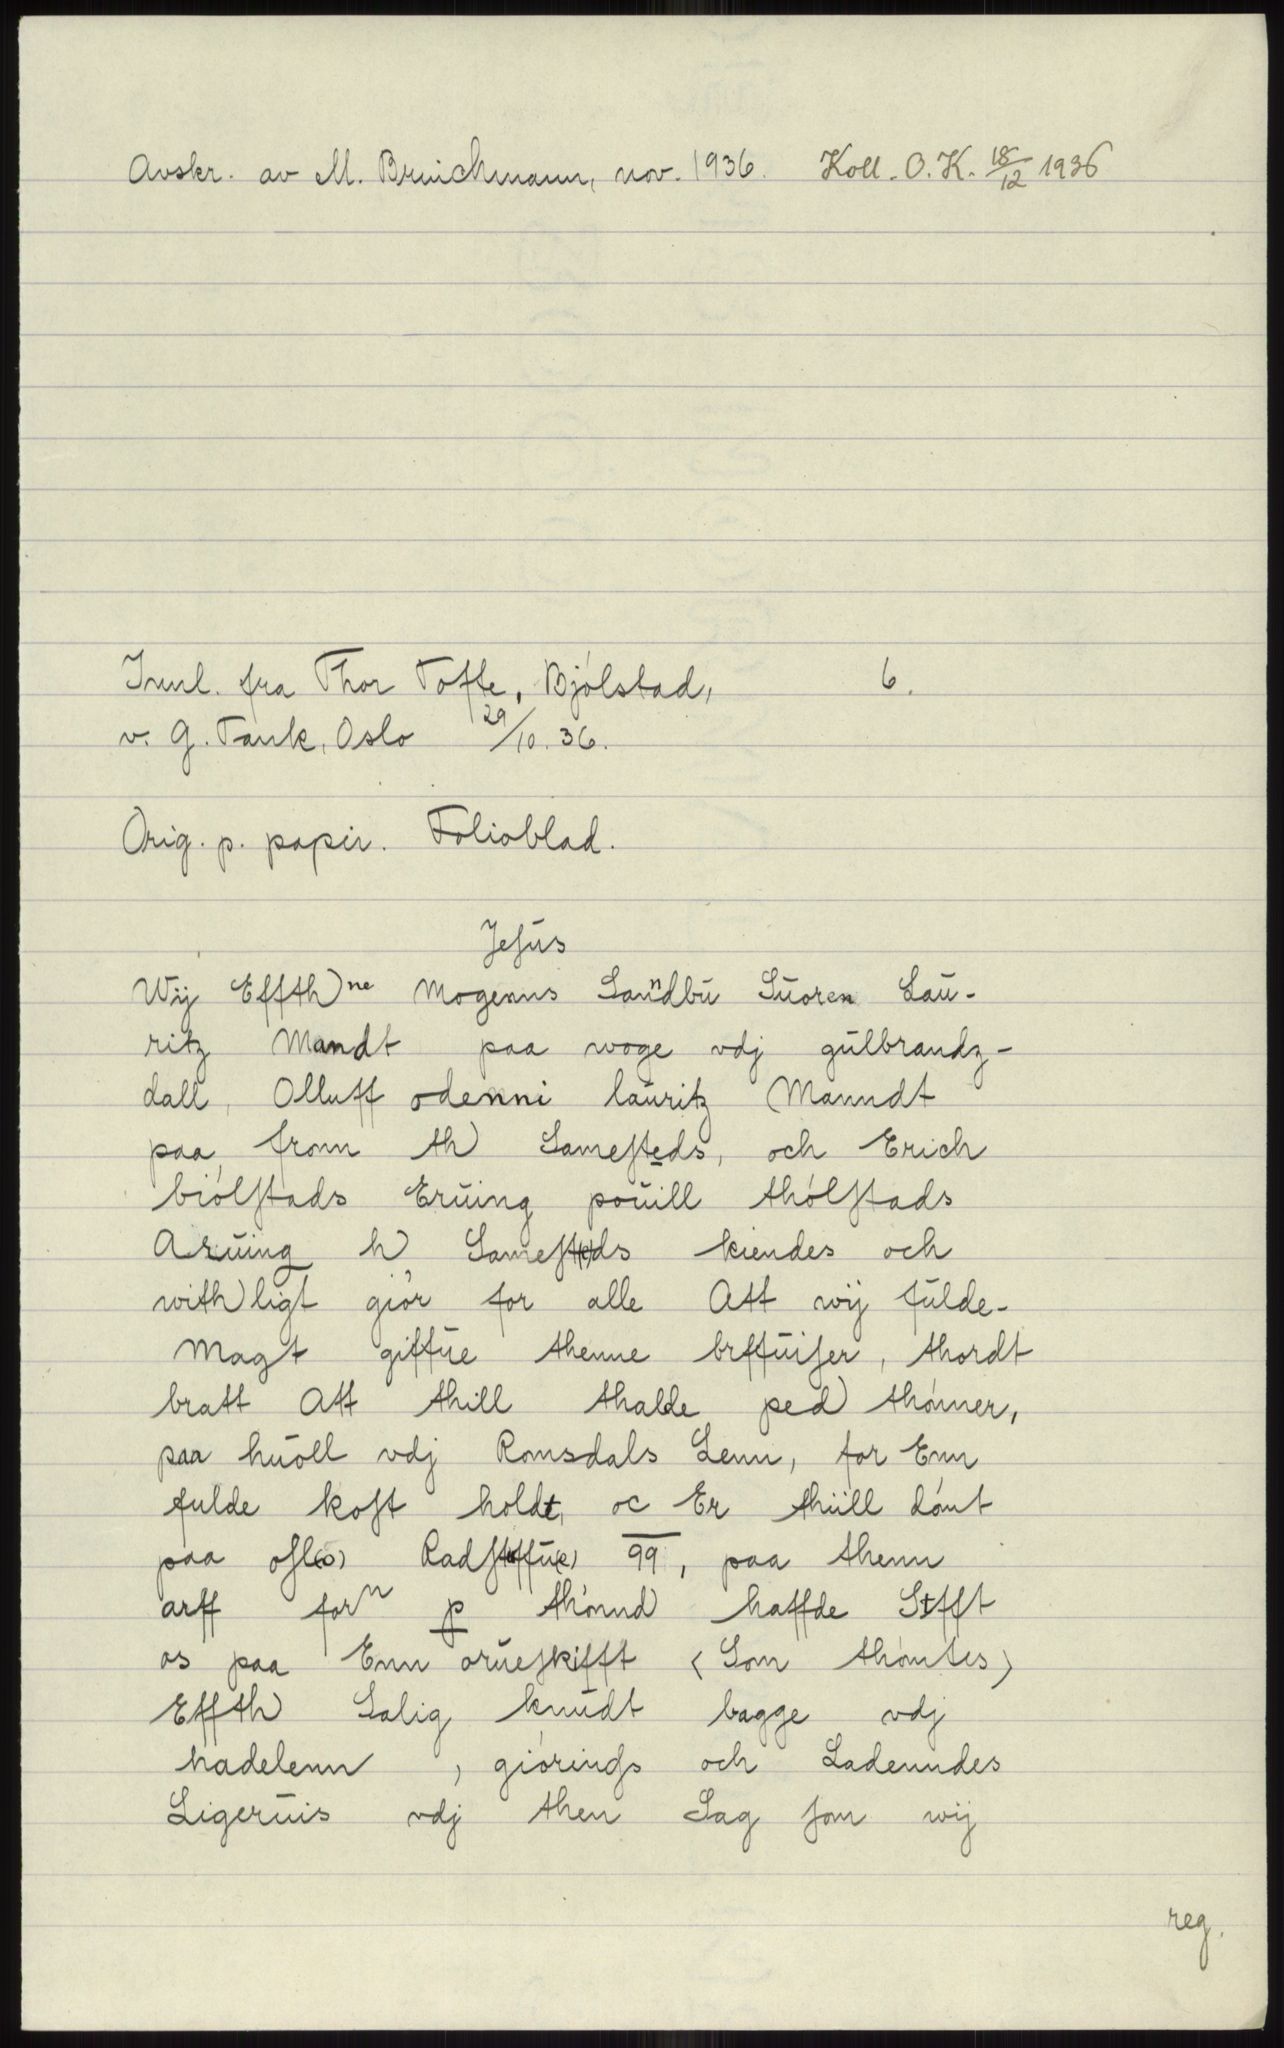 Avskr. av M. Brinchmann, nov. 1936. Koll. O.K. 18/12 1936
Innl. fra Thor Tofte, Bjólstad, 6.
v. G. Tank, Oslo 29/10. 36.
Orig. p. papir. Folioblad.
Jeſus
Wij Effth)ne Mogenns Sanndbu Suoren Lau-
ritz Mandt paa woge vdj gulbrandz-
dall, Olluff odenni lauritz Manndt
paa fronn th) Sameſteds, och Erich
biólſtads Eruing pouill thólſtads
Aruing h) Sameſt(e)ds kiendes och
with)ligt giór for alle Att wij fulde-
Magt giffue thenne brffuiſer, thordt
bratt Att thill thalde ped) thónner,
paa huoll vdj Romsdals Lenn, for Enn
fulde koſt holdt, oc Er thiill dómt
paa oſl(o) Radſtffu(e) 99, paa thenn
arff forn p thónnd) haffde Stfft
os paa Enn orueſkifft (Som thómtes)
Effth) Salig knudt bagge vdj
hadelenn , giórindſ och Ladenndes
Ligeruis vdj then Sag ſom wij
reg.